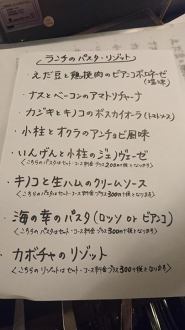 ランチのパスタ・リゾット
・えだ豆と鶏挽肉のビアンコボロネーゼ
(塩味)
・ナスとベーコンのアマトリチャーナ
・カジキとキノコのボスカイオーラ(トマトソース)
・小柱とオクラのアンチョビ風味
・いんげんと小柱のジェノヴェーゼ
(こちらのパスタはセット・コース料金プラス200円で承ります)
・キノコと生ハムのクリームソース
(こちらのパスタはセット・コース料金プラス300円で承ります)
・海の幸のパスタ(ロッソ or ビアンコ)
(こちらのパスタはセット・コース料金プラス300円で承ります)
・カボチャのリゾット
(こちらのリゾットはセット・コース料金プラス300円で承ります)